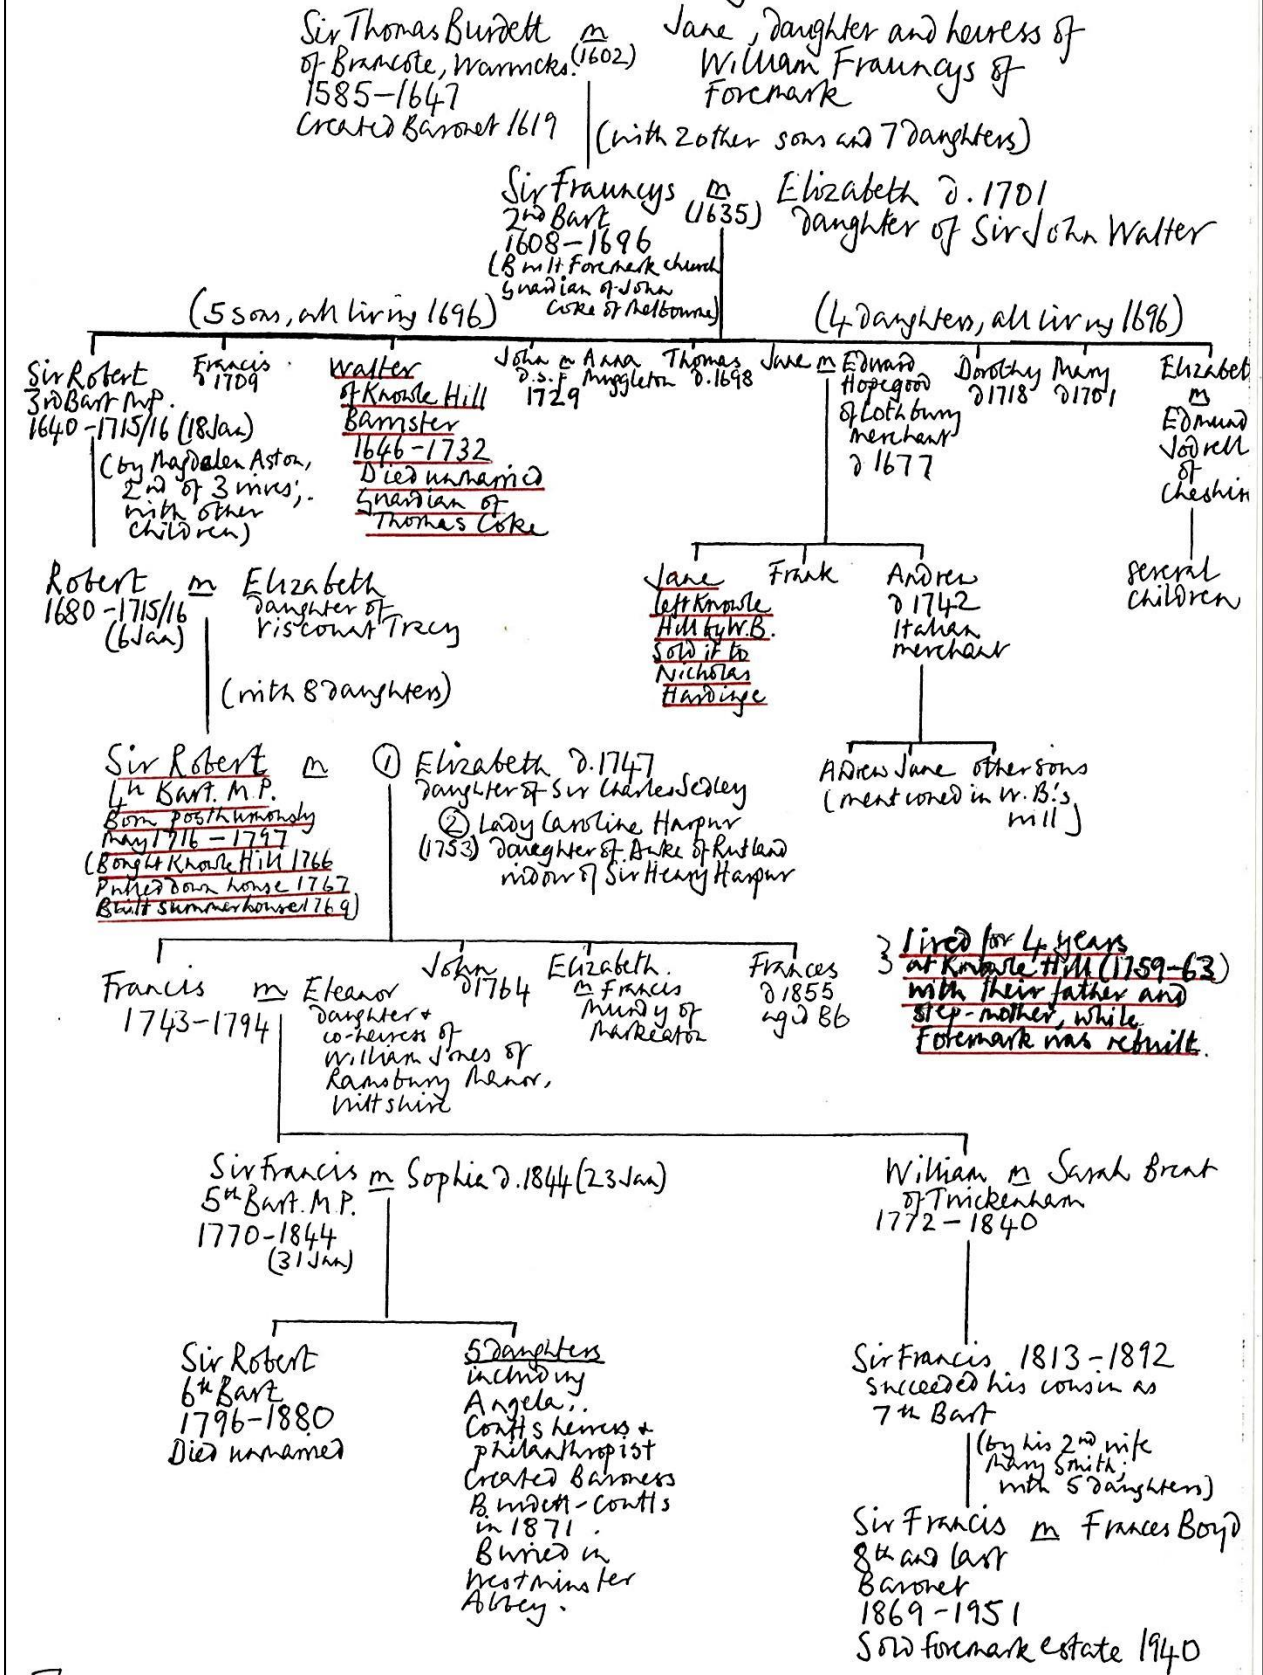 Sir Thomas Burdett m Jane, daughter and heiress of
of Bramcote, Warwicks. (1602) William Frauncys of
1585-1647 Foremark
Created Baronet 1619
(with 2 other sons and 7 daughters)
Sir Frauncys m Elizabeth d. 1701
2nd Bart (1635) daughter of Sir John Walter
1608-1696
(Built Foremark church
guardian of John
Coke of Melbourne)
(5 sons, all living 1696)
(4 daughters, all living 1696)
Sir Robert
3rd Bart M.P.
1640-1715/16 (18 Jan)
(by Magdalen Aston,
2nd of 3 wives;
with other
children)
Francis
d 1709
Walter
of Knowle Hill
Barrister
1646-1732
Died unmarried
Guardian of
Thomas Coke
John m Anna
d.s.p Muggleton
1729
Thomas
d.1698
Jane m Edward
Hopegood
of Lothbury
merchant
d 1677
Dorothy
d 1718
Mary
d 1701
Elizabet
m
Edmund
Jodrell
of
Cheshir
Robert m Elizabeth
1680-1715/16 daughter of
(6 Jan) Viscount Tracy
(with 8 daughters)
Jane
left Knowle
Hill by W.B.
Sold it to
Nicholas
Hardinge
Frank
Andrew
d 1742
Italian
merchant
several
children
Andrew Jane other sons
(mentioned in W.B.'s
will)
Sir Robert m
4th Bart. M.P.
Born posthumously
May 1716-1797
(Bought Knowle Hill 1766
Pulled down house 1767
Built summerhouse 1769)
1 Elizabeth d.1747
daughter of Sir Charles Sedley
2 Lady Caroline Harpur
(1753) daughter of Duke of Rutland
widow of Sir Henry Harpur
Francis m Eleanor
1743-1794 daughter +
co-heiress of
William Jones of
Ramsbury Manor,
Wiltshire
John
d 1764
Elizabeth
m Francis
Mundy of
Markeaton
Frances
d 1855
aged 86
} Lived for 4 years
at Knowle Hill (1759-63)
with their father and
step-mother, while
Foremark was rebuilt.
Sir Francis m Sophia d.1844 (23 Jan)
5th Bart. M.P.
1770-1844
(31 Jan)
William m Sarah Brent
of Twickenham
1772-1840
Sir Robert
6th Bart
1796-1880
Died unmarried
5 Daughters
including
Angela,
Coutts heiress +
philanthropist
Created Baroness
Burdett-Coutts
in 1871.
Buried in
Westminster
Abbey.
Sir Francis 1813-1892
succeeded his cousin as
7th Bart
(by his 2nd wife
Mary Smith;
with 5 daughters)
Sir Francis m Frances Boyd
8th and last
Baronet
1869-1951
Sold Foremark estate 1940